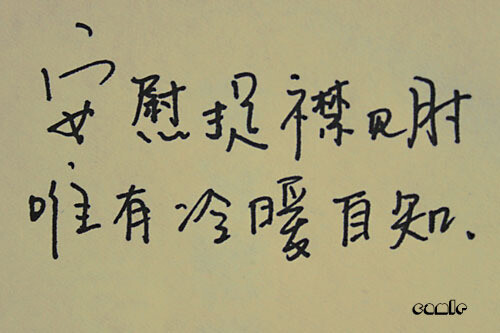 安慰提襟见肘
唯有冷暖自知.
camle